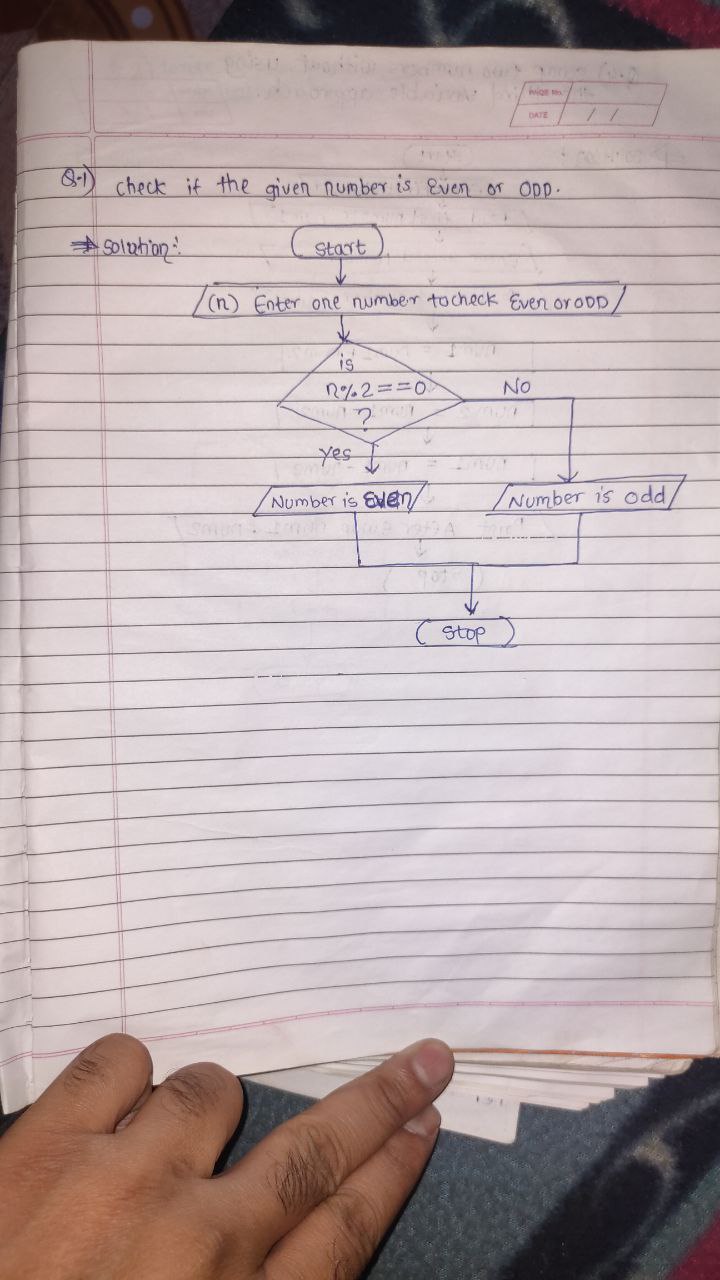 PAGE No.
DATE / /
Q-1) check if the given number is Even or ODD.
⇒ solution:
start
(n) Enter one number to check Even or ODD
is
n%2==0
?
No
Yes
Number is Even
Number is odd
stop